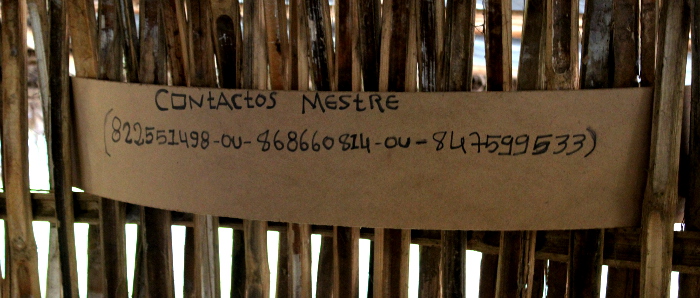 CONTACTOS MESTRE
(822551498-OU-868660814-OU-847599533)